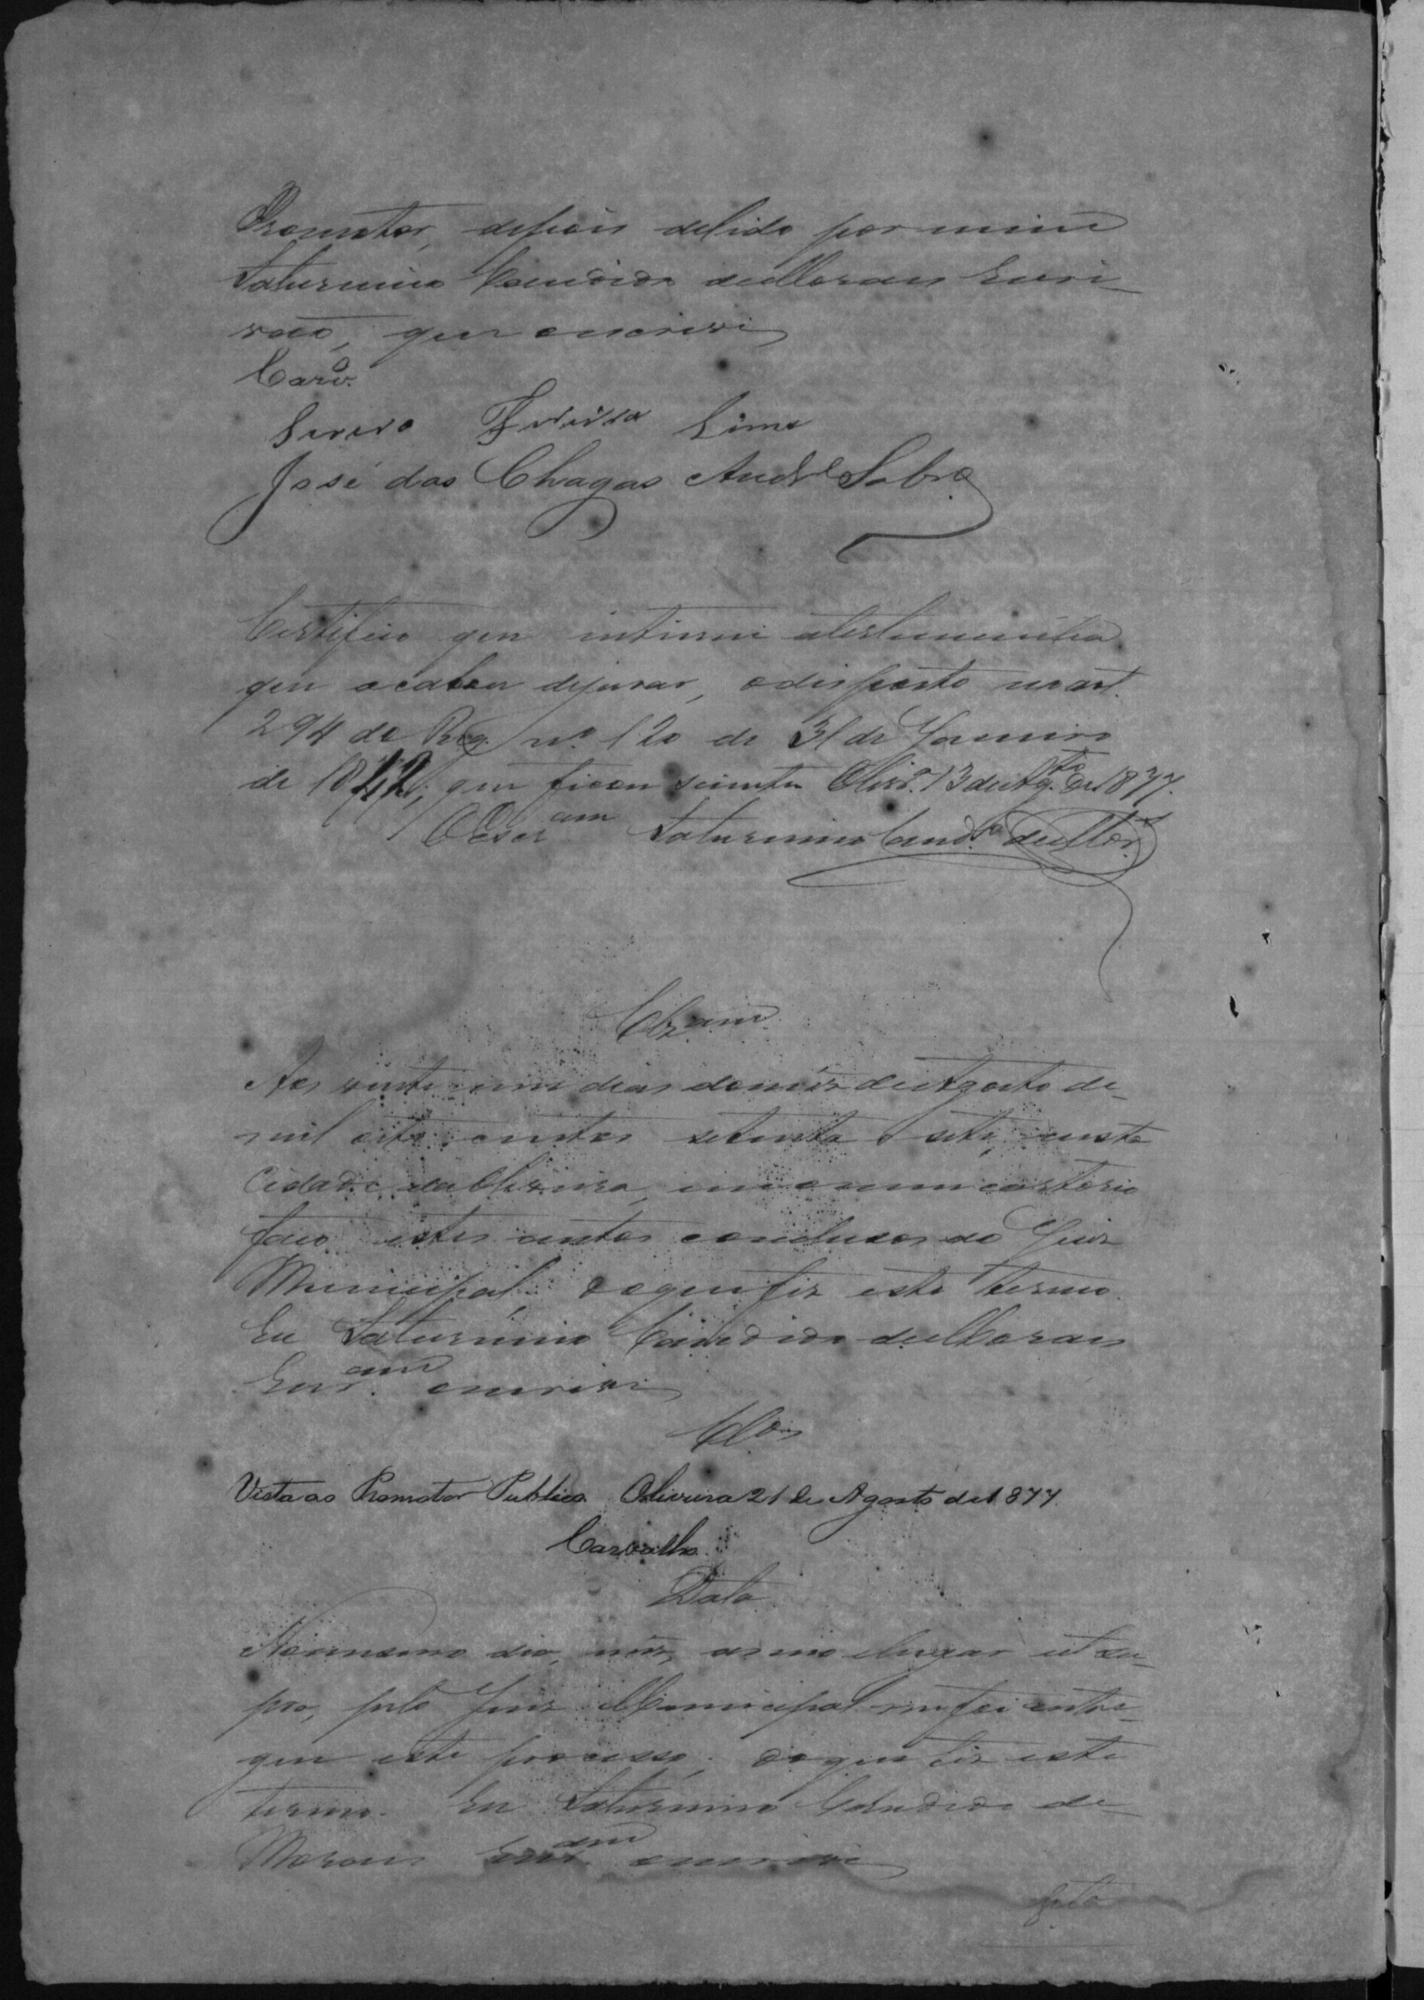 Promotor, depois de lido por mim
Saturnino Candido de Moraes Escri-
vaõ, que escrevi
Carvº.
Severo Lima
José das Chagas Andre Sobrº
Certifico que intimei atestemunha
que acabou dejurar, odisposto no art.
294 do Reg. nº 120 de 31 de Janeiro
de 1842, que ficou sciente. Olivrª. 13 de Agto. de 1877.
OEscram Saturnino Candº de Mor.
Clzam.
Aos vinte um dias domês de Agosto de
mil oito centos setenta e sete, nesta
Cidade da Oliveira, em o meu cartorio
faço estes autos conclusos ao Juiz
Municipal, do que fiz este termo.
Eu Saturnino Candido de Moraes
Escram. escrevi
Clos
Vista ao Promotor Publico. Oliveira 21 de Agosto de 1877
Carvalho
Data
No mesmo dia, mês, anno elugar ut su-
pra, pelo Juiz Municipal me foi entre-
gue este processo, do que fiz este
termo. Eu Saturnino Candido de
Moraes Escram. escrevi